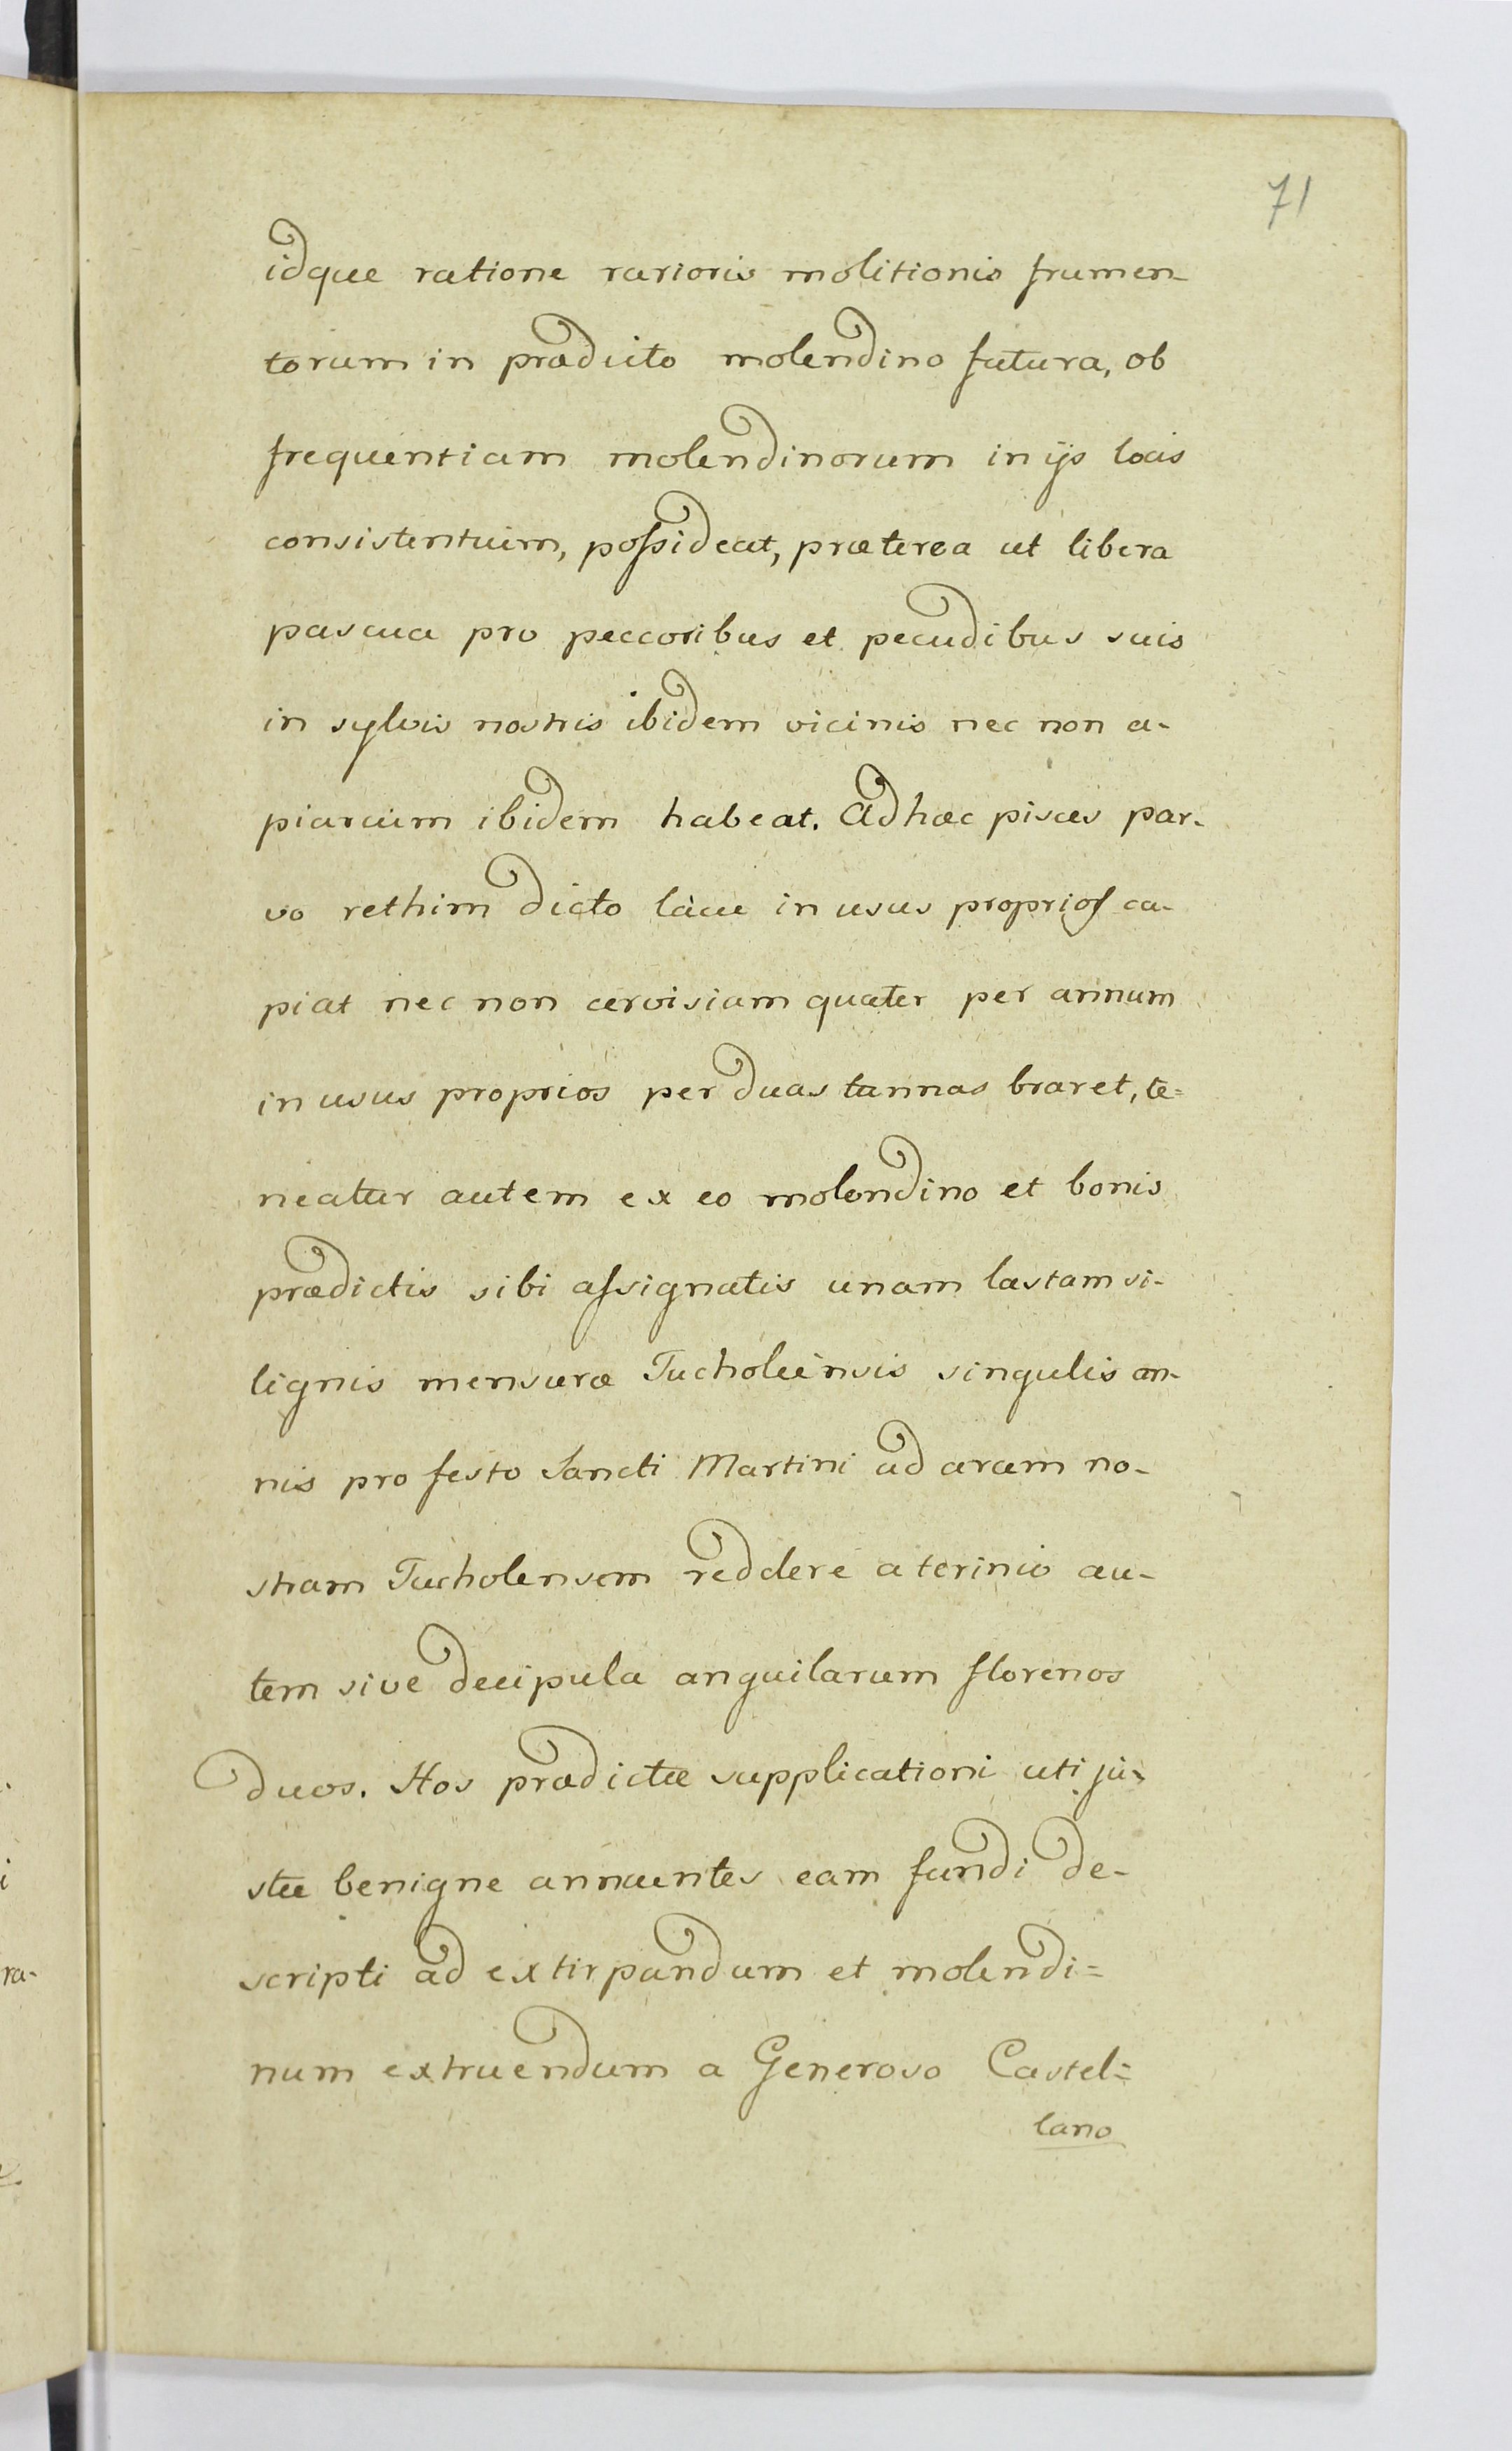 71
idque ratione rarioris molitionis frumen-
torum in prædicto molendino futura, ob
frequentiam molendinorum in ijs locis
consistentium, possideat, præterea ut libera
pascua pro peccoribus et pecudibus suis
in sylvis nostris ibidem vicinis nec non a-
piarium ibidem habeat. Ad hæc pisces par-
vo rethim dicto lacu in usus proprios ca-
piat nec non cervisiam quater per annum
in usus proprios per duas tunnas braxet, te=
neatur autem ex eo molendino et bonis
prædictis sibi assignatis unam lastam si-
lignis mensuræ Tucholiensis singulis an-
nis pro festo Sancti Martini ad arcem no-
stram Tucholensem reddere a terinio au-
tem sive decipula anguilarum florenos
duos. Nos prædictæ supplicationi uti ju-
stæ benigne annuentes eam fundi de-
scripti ad extirpandum et molendi=
num extruendum a Generoso Castel=
lano